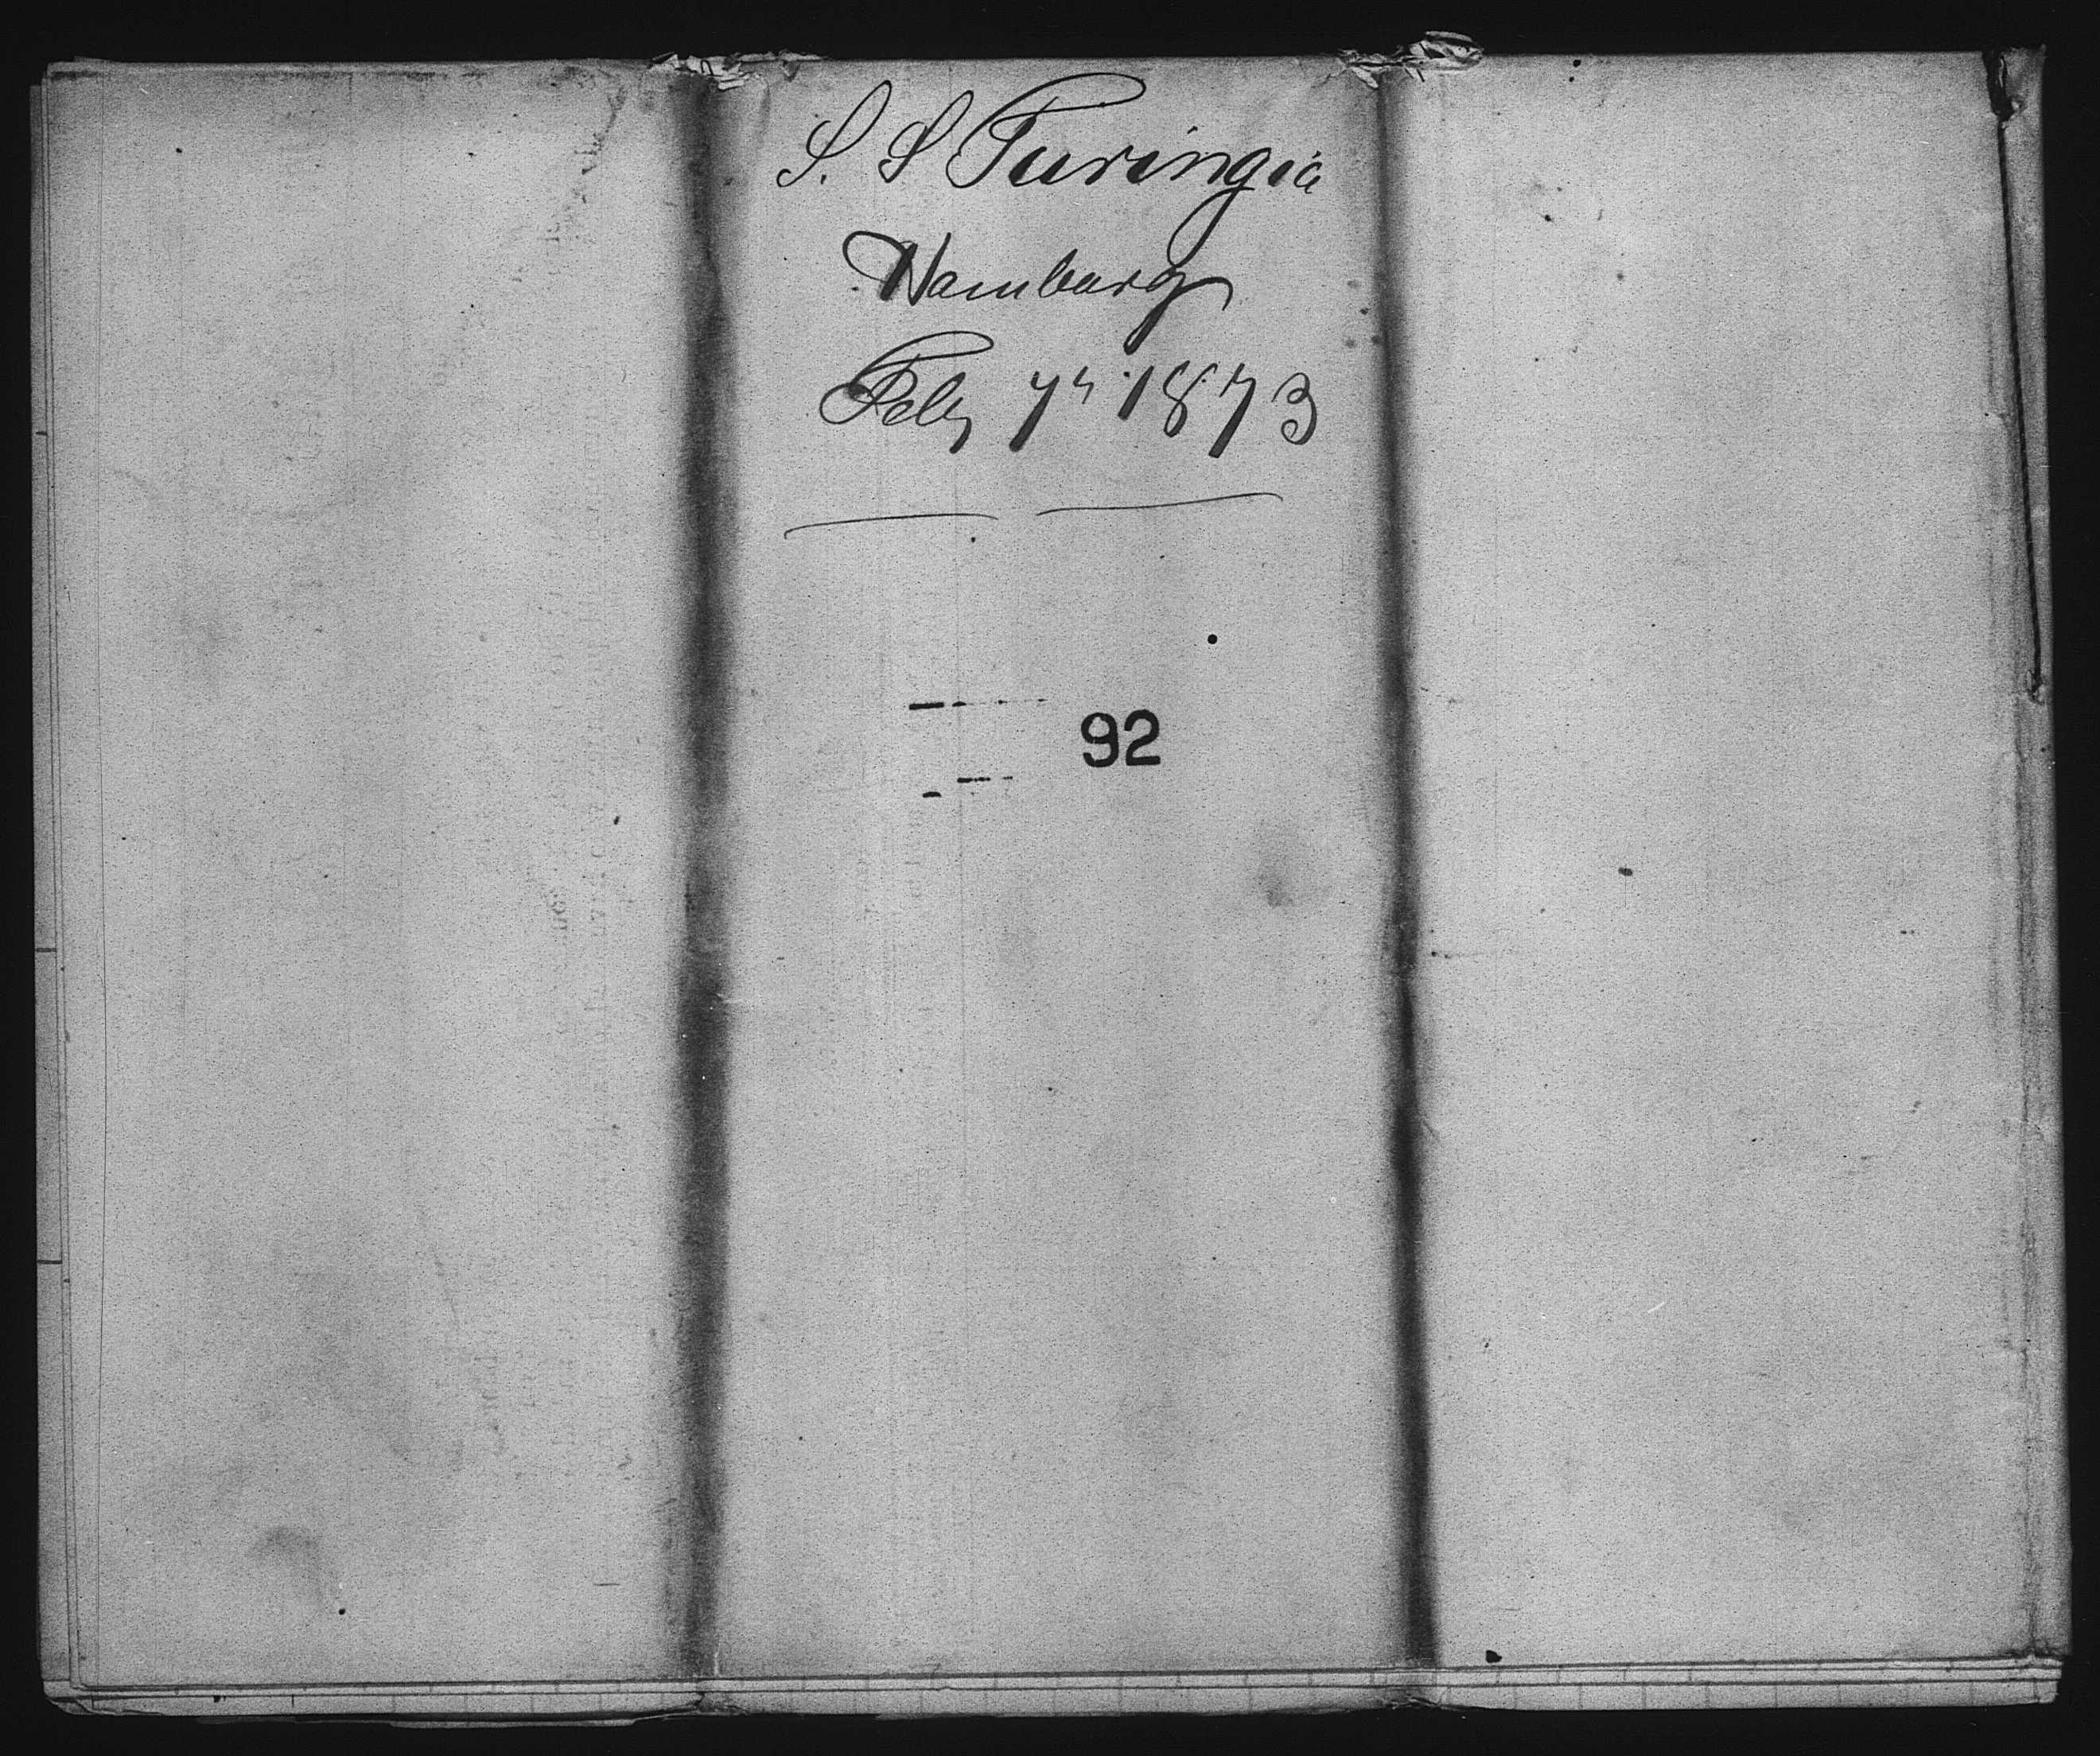 S. S Turingia
Hamburg
Feby 7th 1873
92